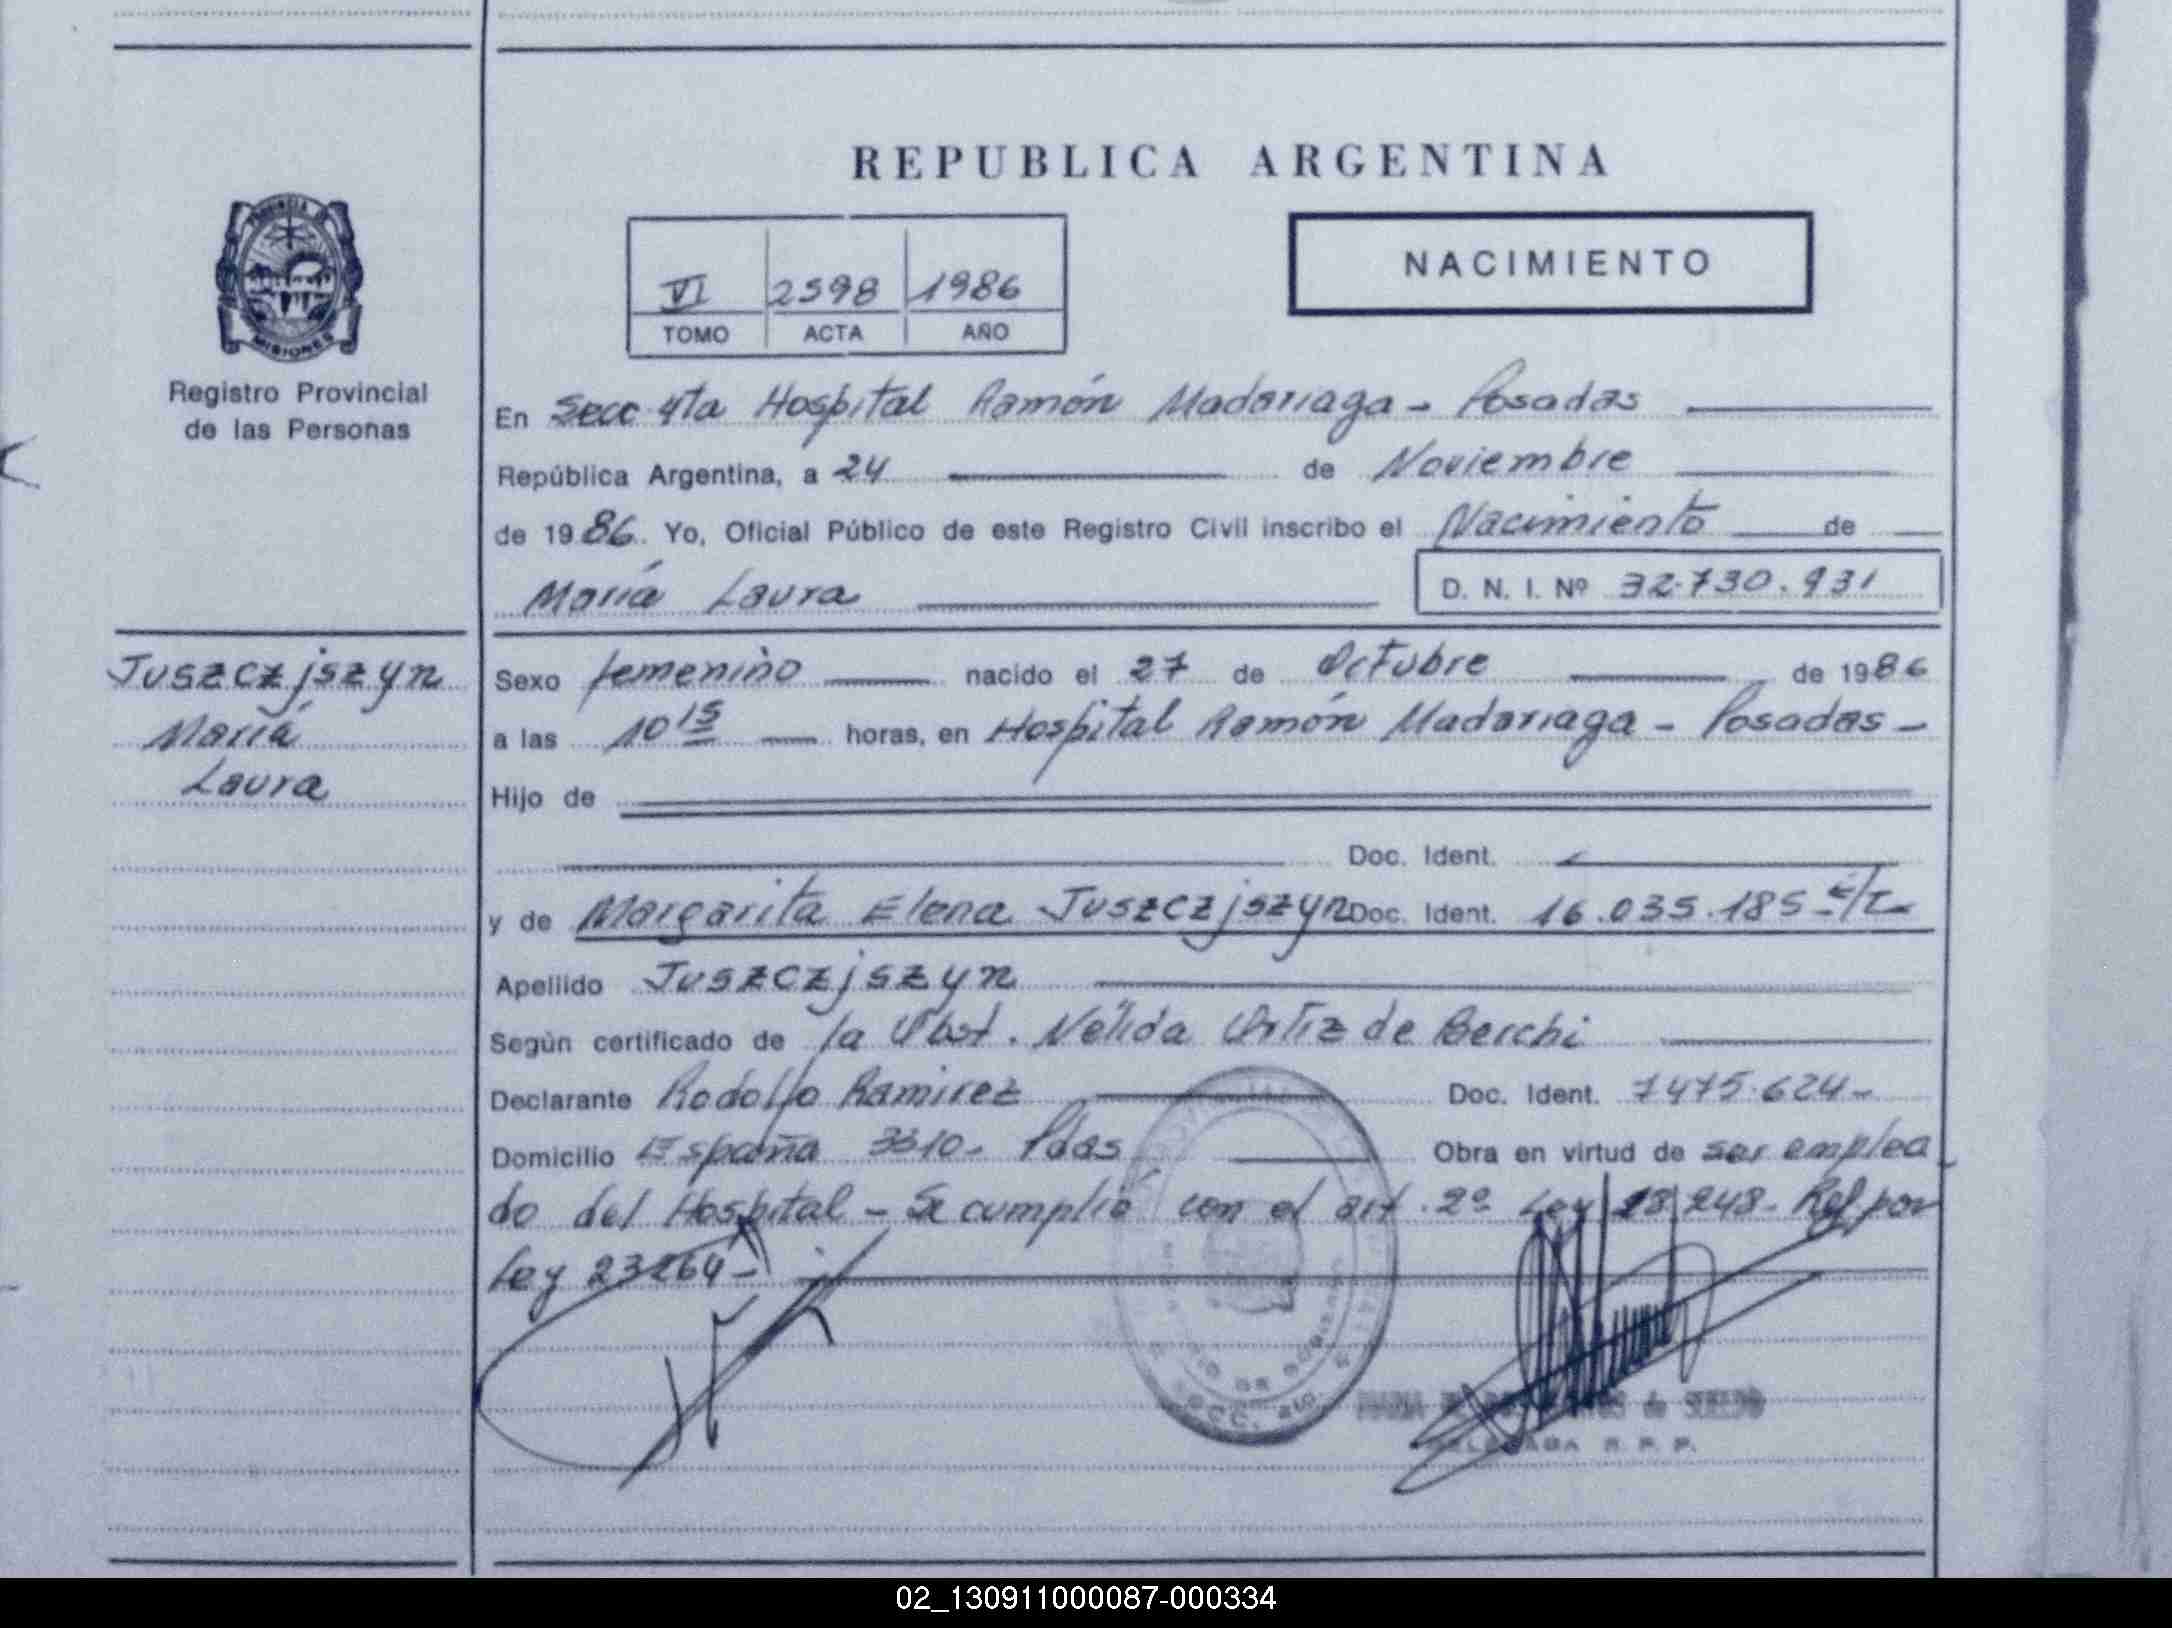 REPUBLICA ARGENTINA
PROVINCIA DE
MISIONES
Registro Provincial
de las Personas
VI 2598 1986
TOMO ACTA AÑO
NACIMIENTO
En Secc 4ta Hospital Ramón Madariaga - Posadas
República Argentina, a 24 de Noviembre
de 1986. Yo, Oficial Público de este Registro Civil inscribo el Nacimiento de
María Laura D. N. I. Nº 32.730.931
Juszczjszyn
María
Laura
Sexo femenino nacido el 27 de Octubre de 1986
a las 10 15 horas, en Hospital Ramón Madariaga - Posadas -
Hijo de
Doc. Ident.
y de Margarita Elena Juszczjszyn Doc. Ident. 16.035.185
Apellido Juszczjszyn
Según certificado de la Obst. Nélida Ortiz de Berchi
Declarante Rodolfo Ramirez Doc. Ident. 7475.624-
Domicilio España 3310- Pdas Obra en virtud de ser emplea
do del Hospital - Se cumplió con el art. 2º Ley 18248- Ref por
Ley 23264-
SECC. 4ta.
DELEGADA R. P. P.
02_130911000087-000334